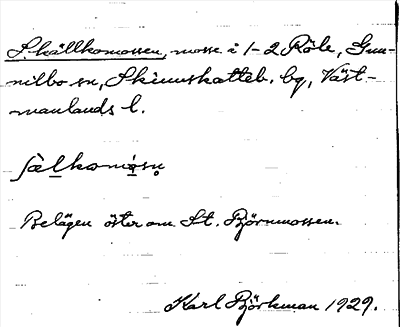 Skällkomossen, mosse i 1-2 Röle, Gun-
nilbo sn, Skinnskatteb. bg, Väst-
manlands l.
sälkomósn
Belägen öster om St. Björnmossen.
Karl Björkman 1929.